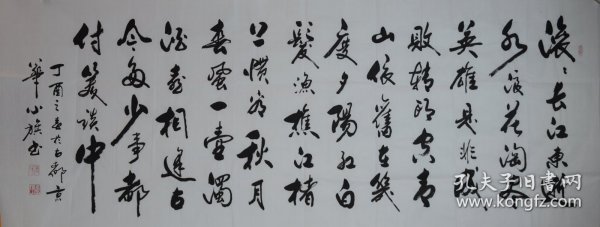 滚〻长江东逝
水浪花淘尽
英雄是非成
败转头空青
山依旧在几
度夕阳红白
发渔樵江渚
上惯看秋月
春风一壶浊
酒喜相逢古
今多少事都
付笑谈中
丁酉之春于古都京
华小族书
孔夫子旧书网
www.kongfz.com